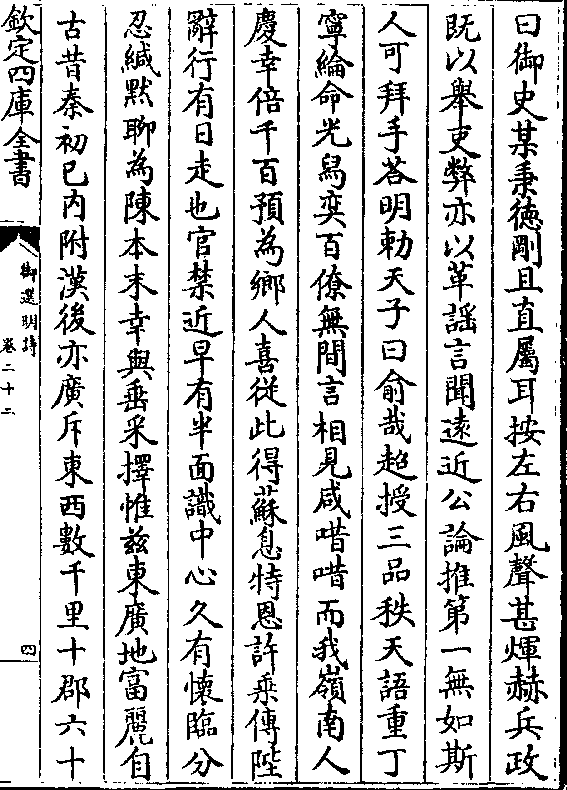 曰御史某秉徳剛且直屬耳按左右風聲甚煇赫兵政
既以舉吏弊亦以革謡言聞遠近公論推第一無如斯
人可拜手荅明勅天子曰俞哉超授三品秩天語重丁
寧綸命光舄奕百僚無間言相見咸唶唶而我嶺南人
慶幸倍千百預為鄉人喜從此得蘇息特恩許乘傳陛
辭行有日走也官禁近早有半面識中心久有懷臨分
忍緘黙聊為陳本末幸與垂采擇惟兹東廣地富麗自
古昔秦初已内附漢後亦廣斥東西數千里十郡六十
欽定四庫全書
御選明詩
卷二十二
四